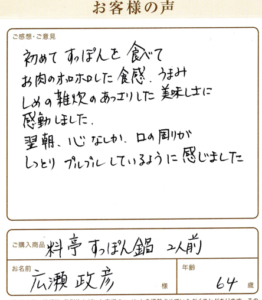 お客様の声
ご感想・ご意見
初めて すっぽんを 食べて
お肉のホロホロした食感、うまみ
しめの雑炊のあっさりした美味しさに
感動しました。
翌朝、心なしか、口の周りが
しっとり プルプル しているように 感じました
ご購入商品
料亭 すっぽん鍋 2人前
お名前
広瀬 政彦 様
年齢
64 歳